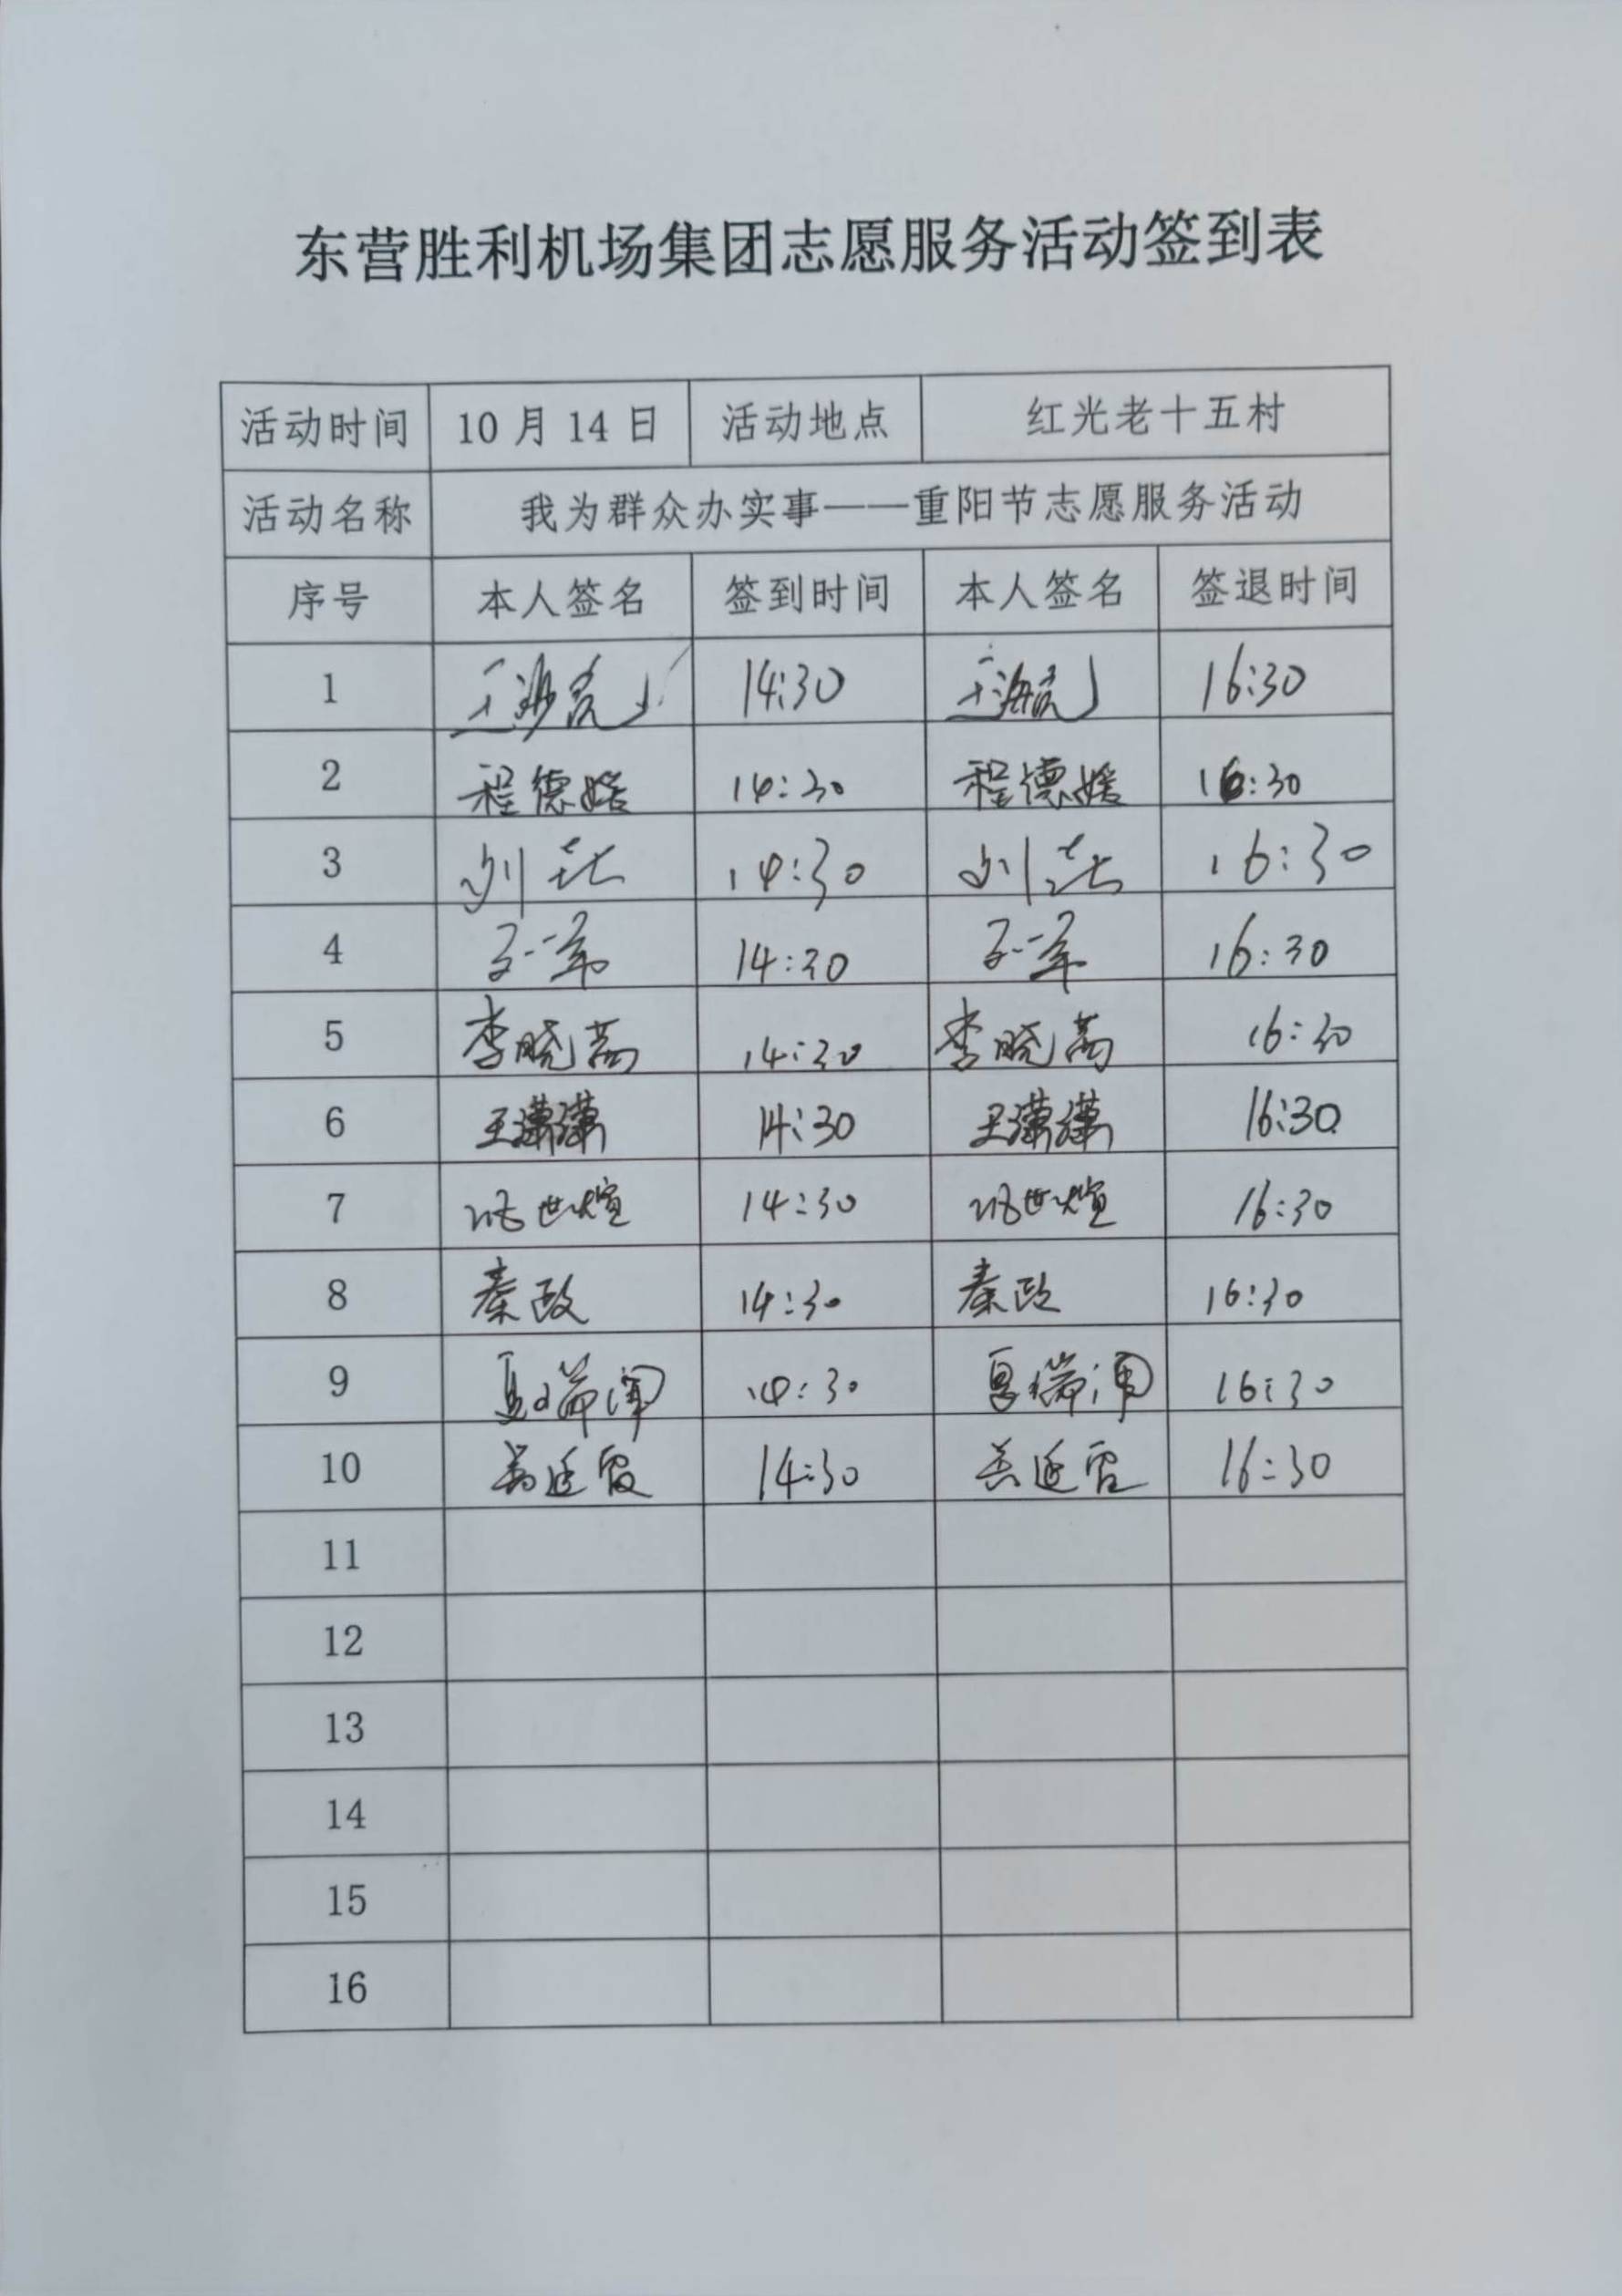 东营胜利机场集团志愿服务活动签到表
活动时间 10月14日 活动地点 红光老十五村
活动名称 我为群众办实事——重阳节志愿服务活动
序号 本人签名 签到时间 本人签名 签退时间
1 王海亮 14:30 王海亮 16:30
2 程德媛 14:30 程德媛 16:30
3 刘 14:30 刘 16:30
4 14:30 16:30
5 李晓菡 14:30 李晓菡 16:30
6 王潇潇 14:30 王潇潇 16:30
7 世煊 14:30 世煊 16:30
8 秦政 14:30 秦政 16:30
9 夏瑞 14:30 夏瑞 16:30
10 延霞 14:30 延霞 16:30
11
12
13
14
15
16